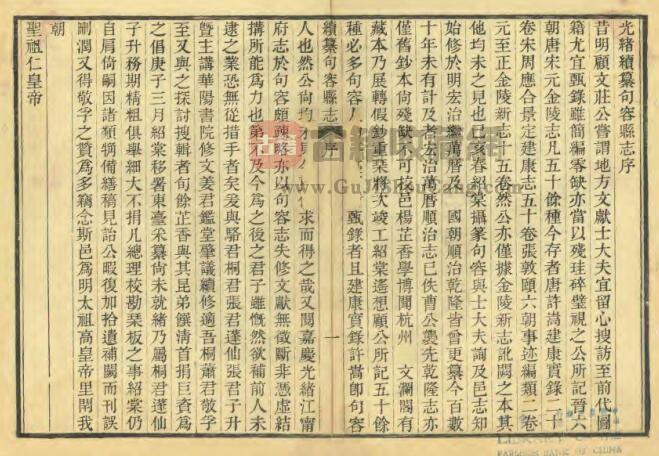 光緒續纂句容縣志序
昔明顧文莊公嘗謂地方文獻士大夫宜留心搜訪至前代圖
籍尤宜甄錄雖簡編零缺亦當以殘珪碎璧視之公所記晉六
朝唐宋元金陵志凡五十餘種今存者唐許嵩建康實錄二十
卷宋周應合景定建康志五十卷張敦頤六朝事迹編類二卷
元至正金陵新志十五卷然公亦僅據金陵新志訛闕之本其
他均未之見也己亥春紹棠攝篆句容與士大夫詢及邑志知
始修於明宏治繼萬曆及 國朝順治乾隆皆曾更纂今百數
十年未有計及者宏治萬曆順治志已佚曹公襲先乾隆志亦
僅舊鈔本尙殘缺 可 邑楊芷香學博聞杭州 文瀾閣有
藏本乃展轉假鈔重栞將次竣工紹棠遙想顧公所記五十餘
種必多句容人 甄錄者且建康實錄許嵩卽句容
人也然公尙均 求而得之哉又閱嘉慶光緒江甯
府志於句容頗疎略亦以句容志失修文獻無徵斷非憑虛結
搆所能爲力也弟不及今爲之後之君子雖慨然欲補前人未
逮之業恐無從措手者矣爰與駱君桐君張君蓬仙張君子升
曁主講華陽書院修文姜君鑑堂肇議續修適吾桐蕭君敬孚
至又與之探討搜輯者句餘芷香與其昆弟饌淸首捐巨資爲
之倡庚子三月紹棠移署東臺采纂尙未就緒乃屬桐君蓬仙
子升務期精粗俱舉細大不捐凡總理校勘栞板之事紹棠仍
自肩倚嗣因諸類犕備繕稿見詒公暇復加拾遺補闕而刊誤
刪潤又得敬孚之贊爲多竊念斯邑爲明太祖高皇帝里閈我
朝
聖祖仁皇帝
續纂句容縣志 序
一
www.GuJiShouCang.com
LIBRARY